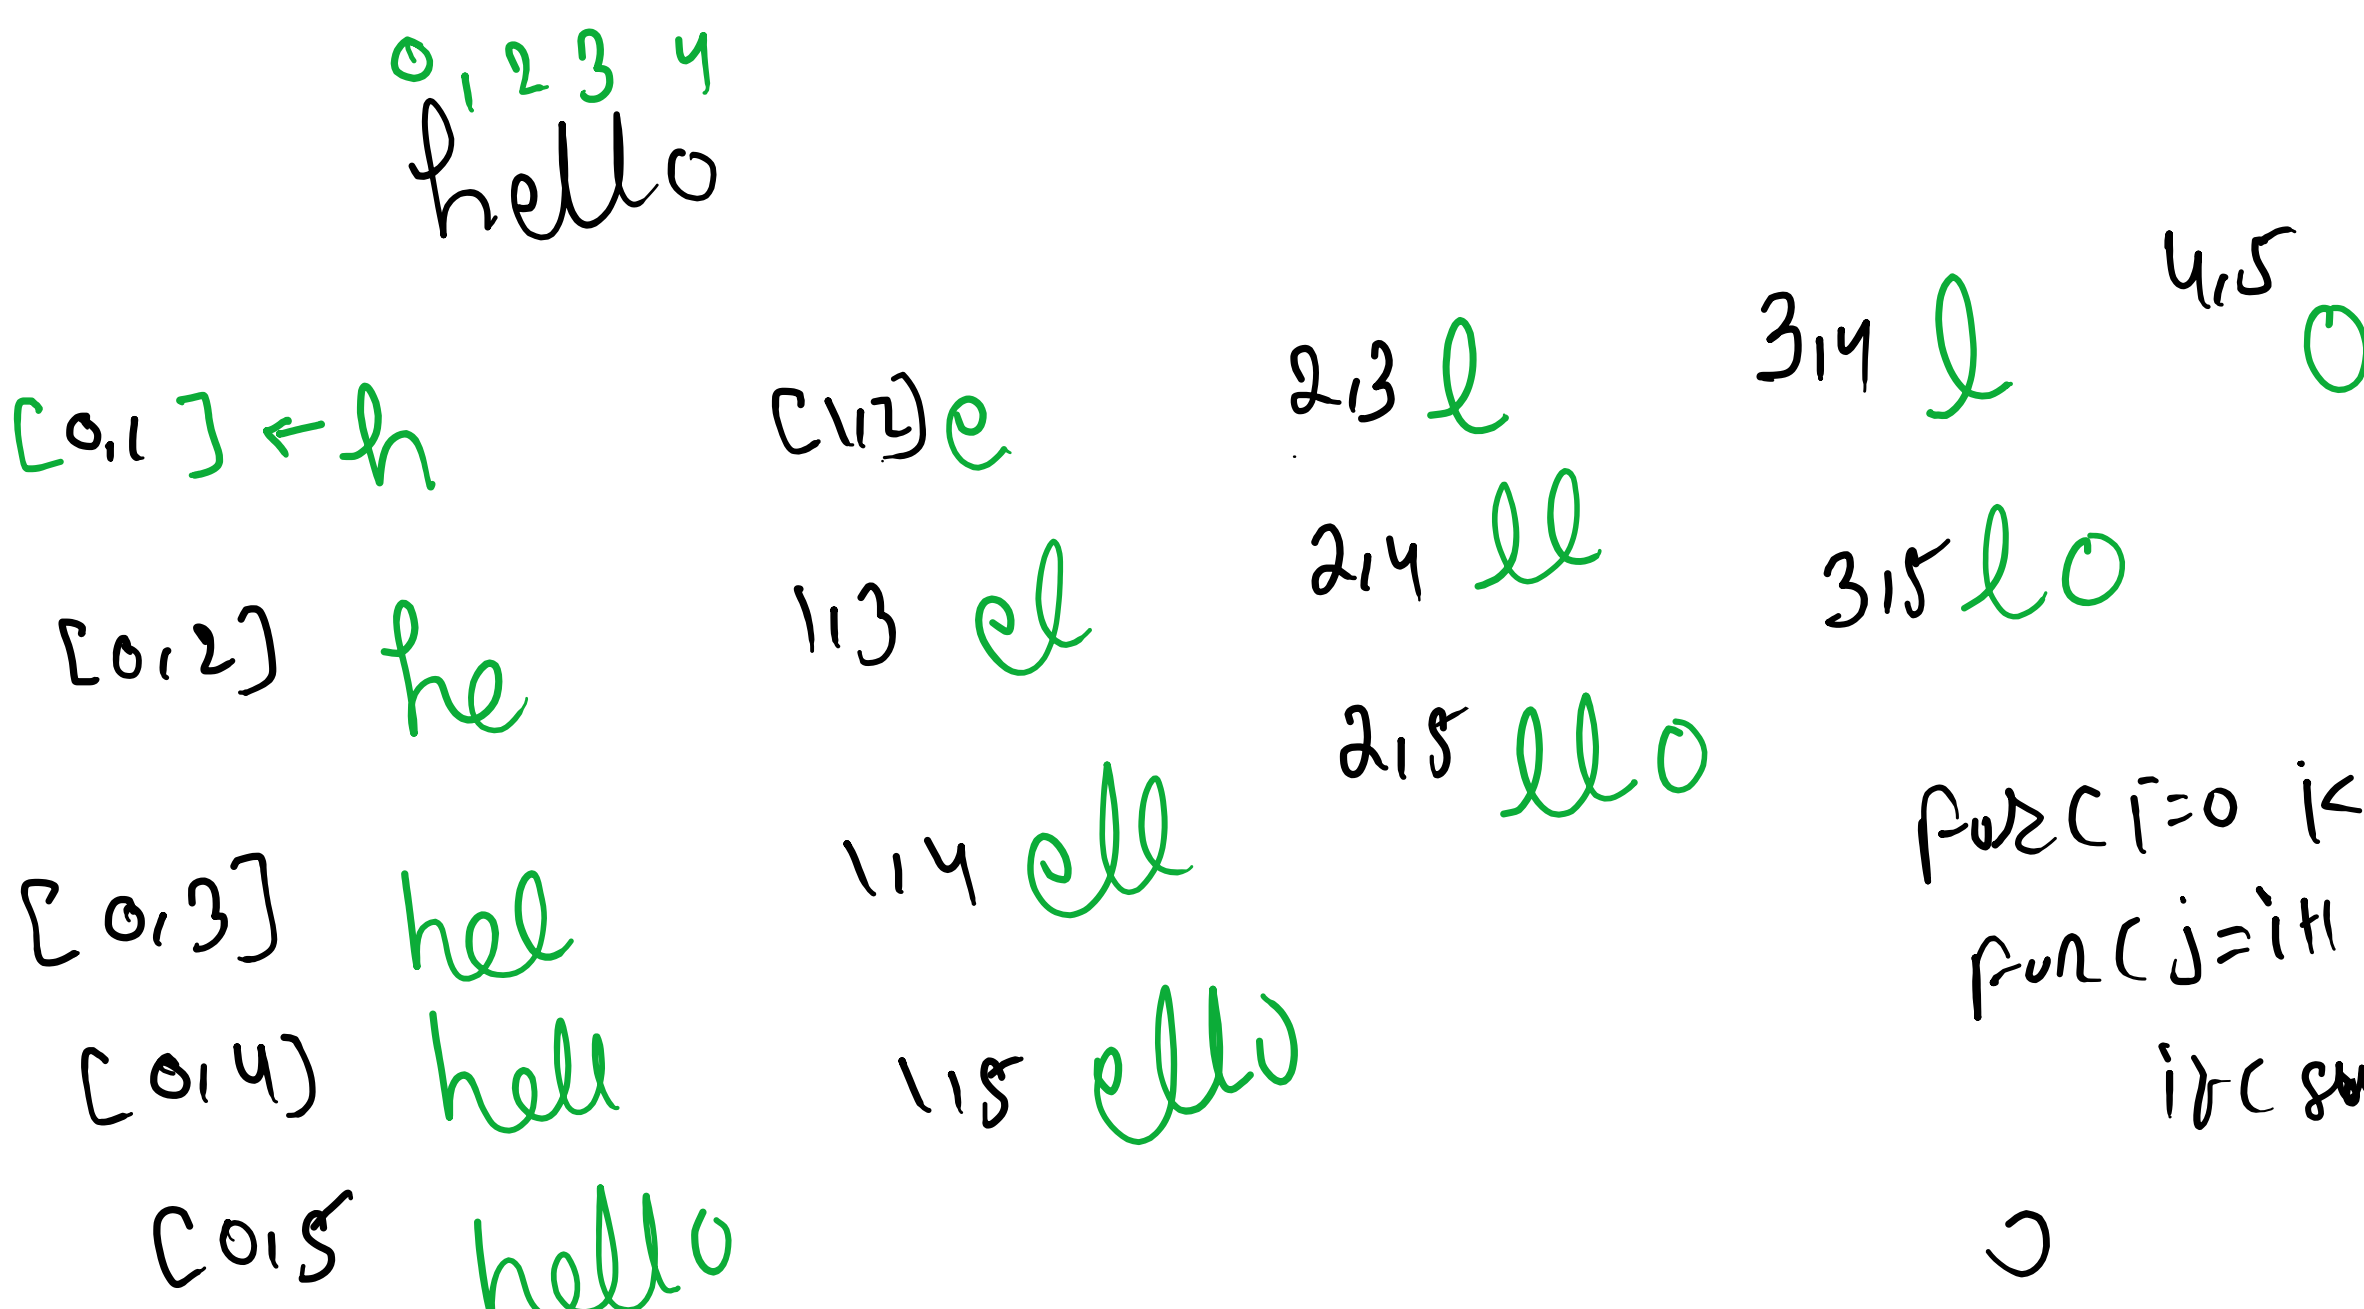 0 1 2 3 4
hello
[0,1] ← h
[0,2] he
[0,3] hel
[0,4) hell
[0,5 hello
[1,2] e
1,3 el
1,4 ell
1,5 ello
2,3 l
2,4 ll
2,5 llo
3,4 l
3,5 lo
4,5 o
for( i=0 i<
for( j=i+1
if(